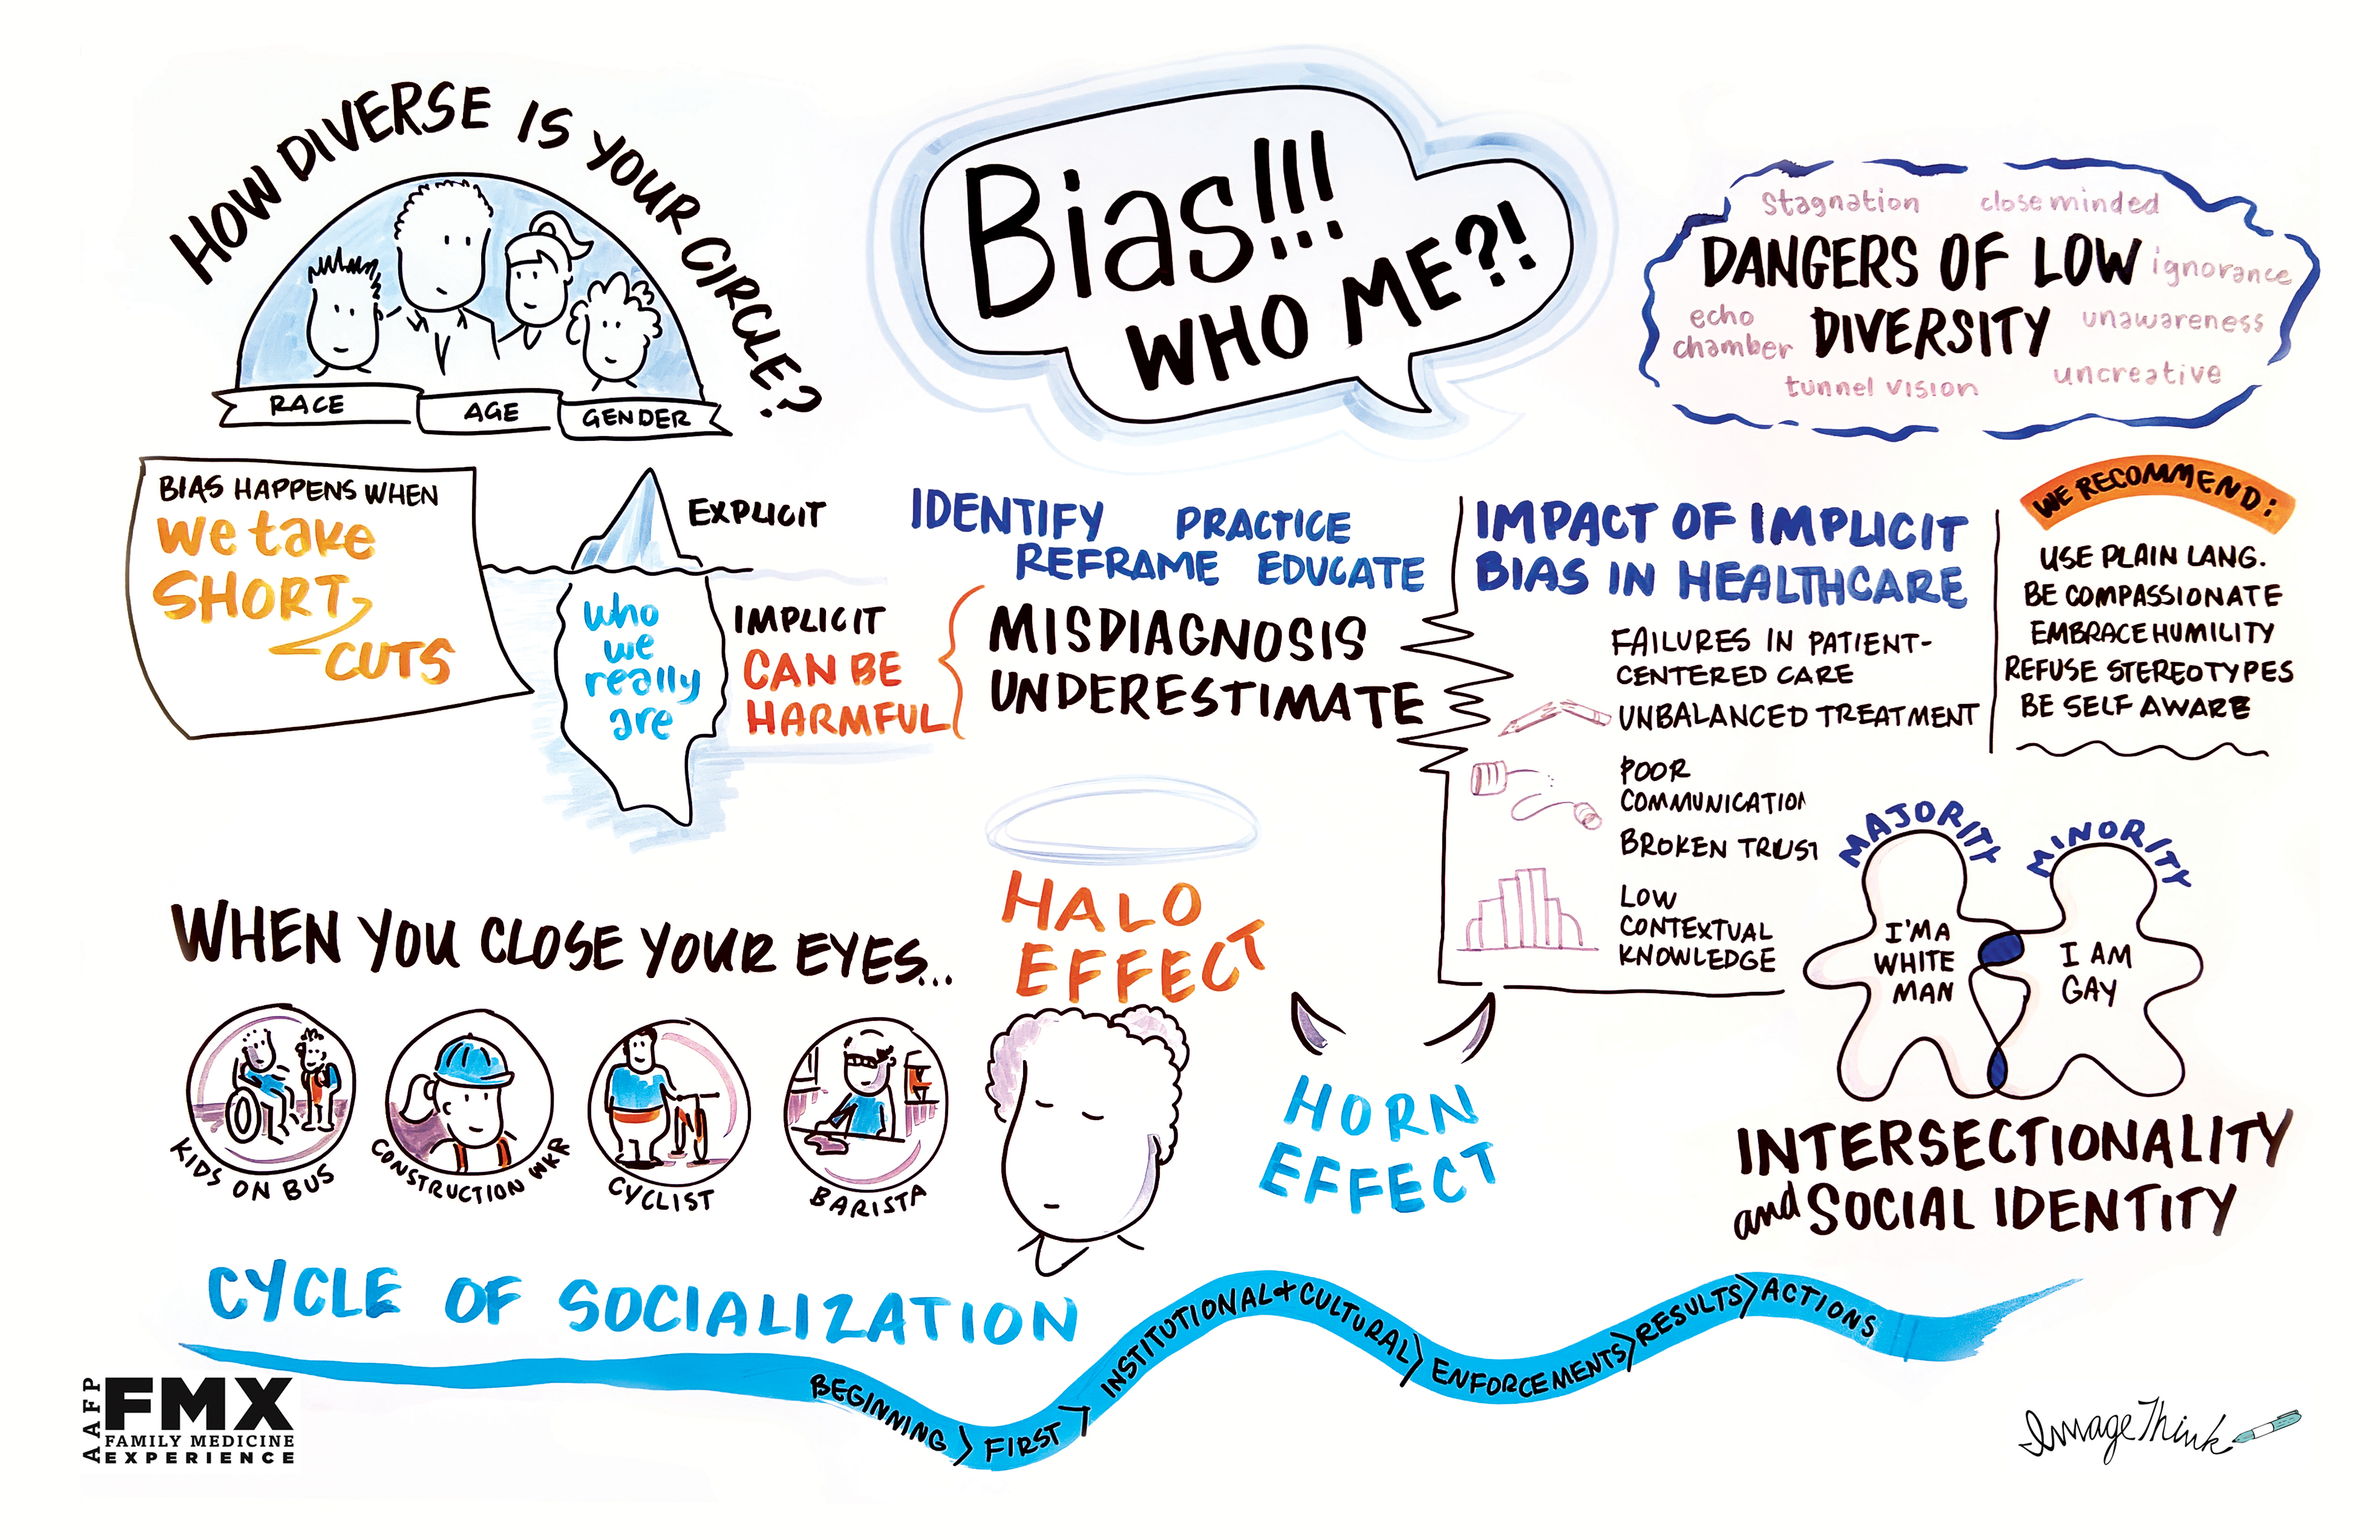 HOW DIVERSE IS YOUR CIRCLE?
RACE
AGE
GENDER
Bias!!!
WHO ME?!
stagnation
close minded
DANGERS OF LOW
ignorance
echo
chamber
DIVERSITY
unawareness
tunnel vision
uncreative
BIAS HAPPENS WHEN
We take
SHORT
CUTS
EXPLICIT
who
we
really
are
IMPLICIT
CAN BE
HARMFUL
IDENTIFY
PRACTICE
REFRAME
EDUCATE
MISDIAGNOSIS
UNDERESTIMATE
IMPACT OF IMPLICIT
BIAS IN HEALTHCARE
FAILURES IN PATIENT-
CENTERED CARE
UNBALANCED TREATMENT
POOR
COMMUNICATION
BROKEN TRUST
LOW
CONTEXTUAL
KNOWLEDGE
WE RECOMMEND:
USE PLAIN LANG.
BE COMPASSIONATE
EMBRACE HUMILITY
REFUSE STEREOTYPES
BE SELF AWARE
WHEN YOU CLOSE YOUR EYES...
KIDS ON BUS
CONSTRUCTION WKR
CYCLIST
BARISTA
HALO
EFFECT
HORN
EFFECT
MAJORITY
MINORITY
I'M A
WHITE
MAN
I AM
GAY
INTERSECTIONALITY
and SOCIAL IDENTITY
CYCLE OF SOCIALIZATION
BEGINNING > FIRST > INSTITUTIONAL + CULTURAL > ENFORCEMENTS > RESULTS > ACTIONS
AAFP
FMX
FAMILY MEDICINE
EXPERIENCE
ImageThink